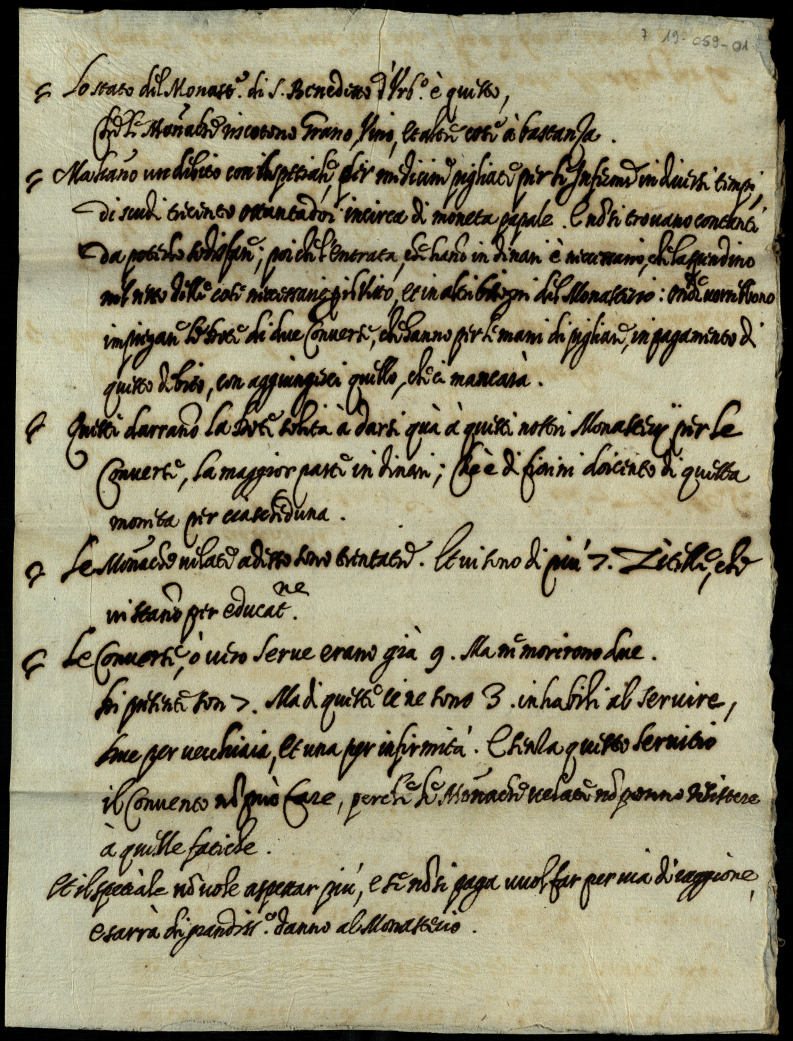 7 19-059-01
Lo stato del Monast.º di S. Benedetto d'Urb.º è questo,
Che le Monache riscoteno Grano, Vino, et altre cose à bastanza.
Ma hano un debito con lo spetiale, per medicine pigliate per le Inferme in diversi tempi,
di scudi trecento ottantadoi incirca di moneta papale. E nõ si trovano contanti
da poterlo sodisfare; poi che l'entrata, che hano in dinari è necessario, che la spendino
nel resto delle cose necessarie pel Vito, et in altri bisogni del Monasterio: onde vorrebbono
impiegare le dote di due Converse, che hanno per le mani di pigliare, in pagamento di
questo debito, con aggiungerci quello, che ci mancarà.
Questi darrano la dote solita à darsi quà à questi nostri Monasterij per le
Converse, la maggior parte in dinari; che è di fiorini doicento di questa
moneta per ciascheduna.
Le Monache velate adesso sono trentatre. Et vi sono di più 7. Zitelle, che
vi stano per educat.ne
Le Converse, ò vero Serve erano già 9. Ma ne morirono due.
Di presente son 7. Ma di queste ce ne sono 3. inhabili al servire,
due per vecchiaia, et una per infirmità. E senza questo servitio
il Convento nõ può fare, perche le Monache velate nõ ponno resistere
à quelle fatiche.
Et il speciale nõ vole aspettar più, e se nõ si paga vuol far per via di raggione,
e sarrà di grandiss.º danno al Monasterio.